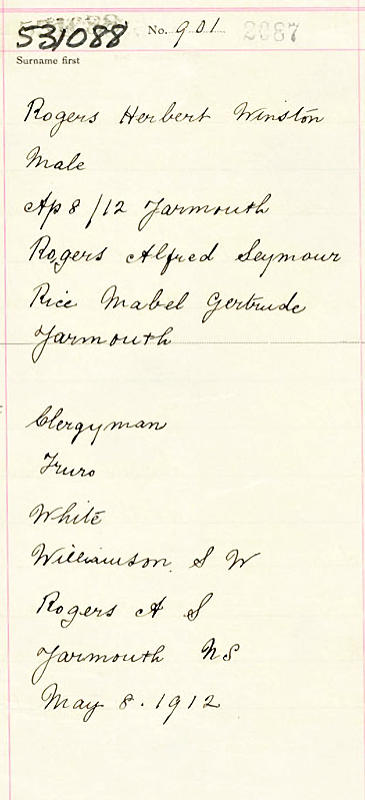 531088 No. 901 2087
Surname first
Rogers Herbert Winston
Male
Ap 8/12 Yarmouth
Rogers Alfred Seymour
Rice Mabel Gertrude
Yarmouth
Clergyman
Truro
White
Williamson. S W
Rogers A S
Yarmouth NS
May 8. 1912